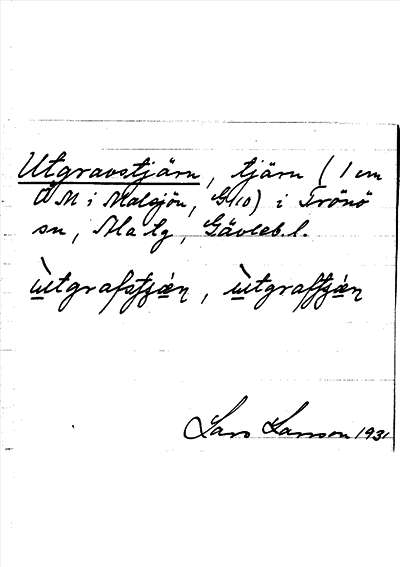 Utgravstjärn, tjärn (1 cm
Ö M i Malgjön, G 10) i Trönö
sn, Ala tg, Gävleb. l.
ùtgrafstjæ̀n, ùtgrafftjæ̀n
Lars Larsson 1931